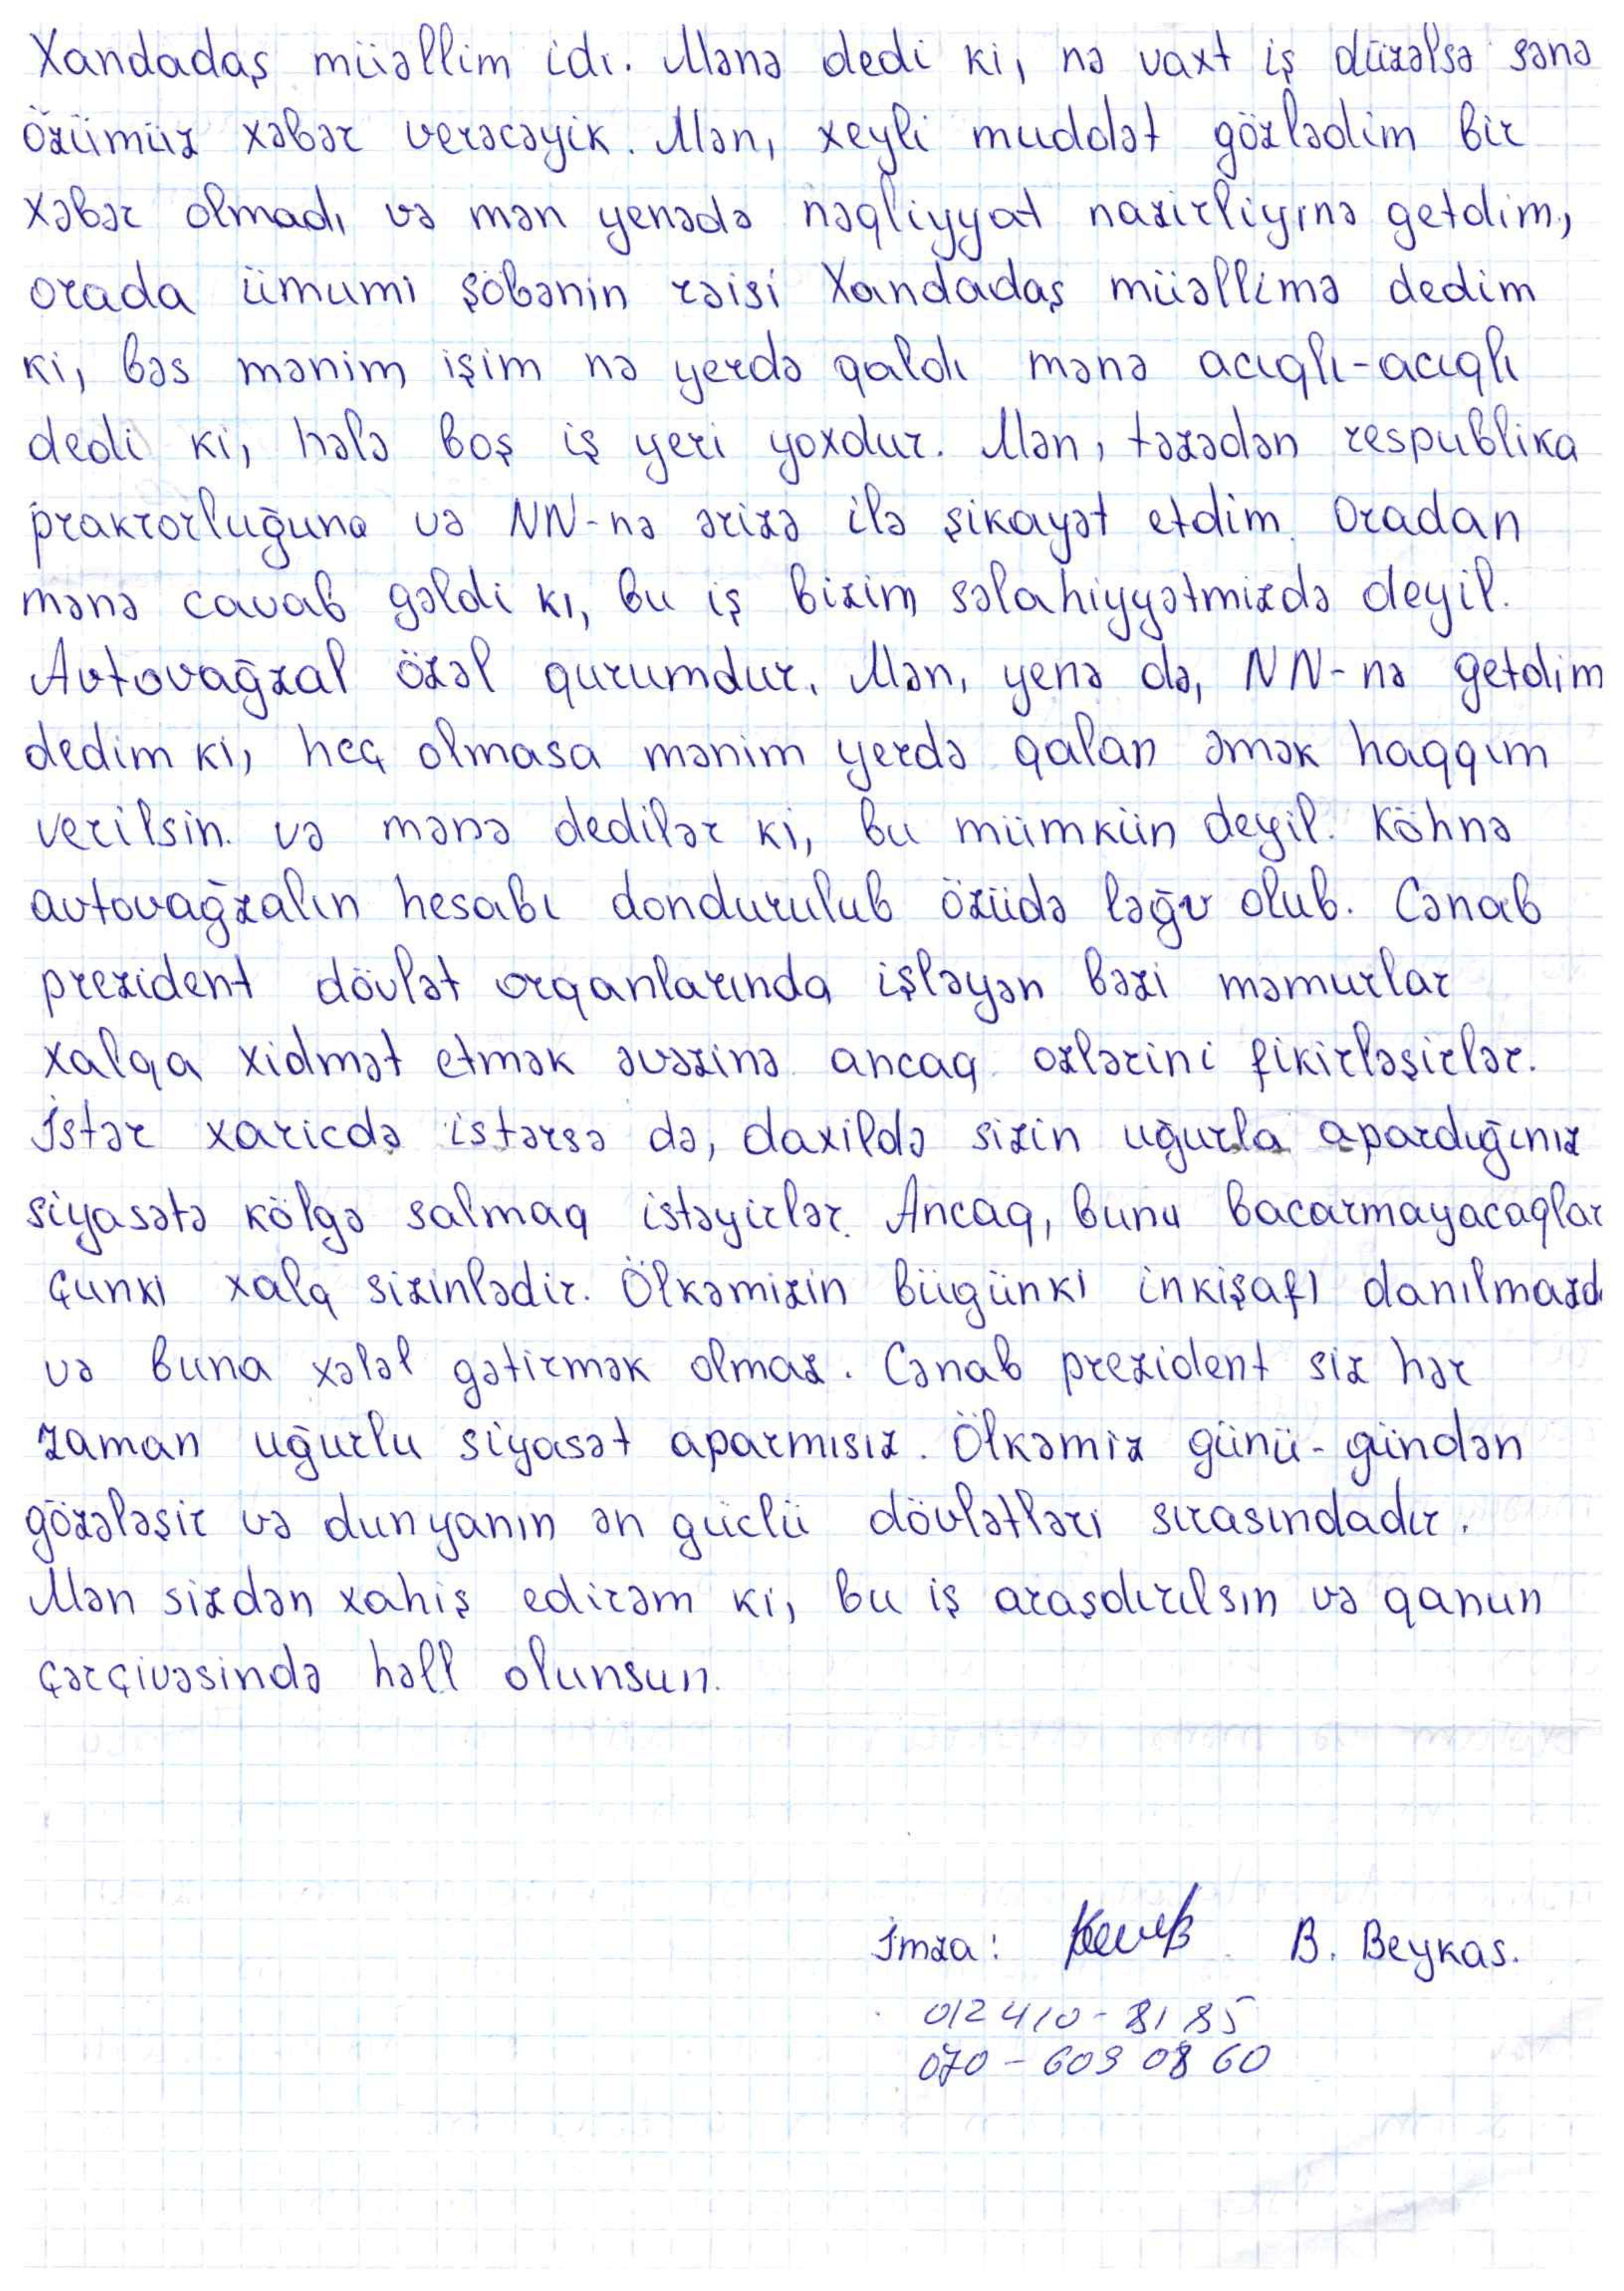 Xandadaş müəllim idi. Mənə dedi ki, nə vaxt iş düzəlsə sənə
özümüz xəbər verəcəyik. Mən, xeyli muddət gözlədim bir
xəbər olmadı və mən yenədə nəqliyyat nazirliyinə getdim,
orada ümumi şöbənin rəisi Xandadaş müəllimə dedim
ki, bəs mənim işim nə yerdə qaldı mənə acıqlı-acıqlı
dedi ki, hələ boş iş yeri yoxdur. Mən, təzədən respublika
prakrorluğuna və NN-nə ərizə ilə şikayət etdim. Oradan
mənə cavab gəldi ki, bu iş bizim səlahiyyətmizdə deyil.
Avtovağzal özəl qurumdur. Mən, yenə də, NN-nə getdim
dedim ki, heç olmasa mənim yerdə qalan əmək haqqım
verilsin. və mənə dedilər ki, bu mümkün deyil. Köhnə
avtovağzalın hesabı dondurulub özüdə ləğv olub. Cənab
prezident dövlət orqanlarında işləyən bəzi məmurlar
xalqa xidmət etmək əvəzinə ancaq ozlərini fikirləşirlər.
İstər xaricdə istərsə də, daxildə sizin uğurla apardığınız
siyasətə kölgə salmaq istəyirlər. Ancaq, bunu bacarmayacaqlar
çunki xalq sizinlədir. Ölkəmizin bügünki inkişafı danılmazdı
və buna xələl gətirmək olmaz. Cənab prezident siz hər
zaman uğurlu siyasət aparmısız. Ölkəmiz günü-gündən
gözələşir və dunyanın ən güclü dövlətləri sırasındadır.
Mən sizdən xahiş edirəm ki, bu iş araşdırılsın və qanun
çərçivəsində həll olunsun.
İmza: B. Beykas.
012 410-81 85
070-609 08 60